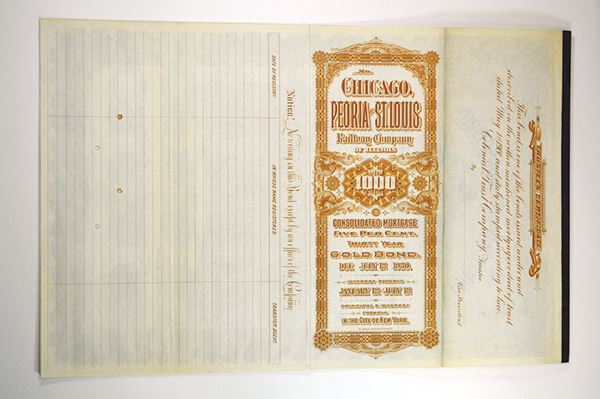 DATE OF REGISTRY.
IN WHOSE NAME REGISTERED.
TRANSFER AGENT.
Notice: No writing on this Bond except by an officer of the Company
No.
CHICAGO,
PEORIA AND ST. LOUIS
Railway Company
OF ILLINOIS
1000
CONSOLIDATED MORTGAGE
FIVE PER CENT.
THIRTY YEAR
GOLD BOND.
DUE JULY 1ST 1930.
INTEREST PAYABLE
JANUARY 1ST JULY 1ST
PRINCIPAL & INTEREST
PAYABLE
IN THE CITY OF NEW YORK.
TRUSTEE'S CERTIFICATE.
This bond is one of the bonds issued under and
described in the within mentioned mortgage or deed of trust
dated May 1st and duly stamped according to law.
Colonial Trust Company, Trustee
By
Vice President